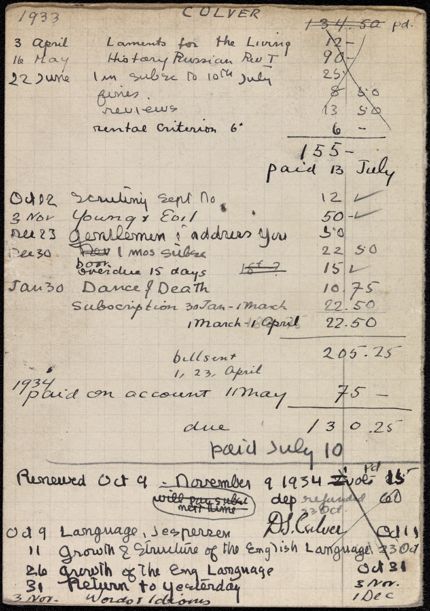 1933 CULVER 134.50 pd.
3 April Laments for the Living 12 -
16 May History Russian Rev I 90 -
22 June 1 m subsc to 10th July 25
fines 8 50
reviews 13 50
rental Criterion 6 6 -
155 -
paid 13 July
Oct 12 Scrutiny Sept No 12 ✓
3 Nov Young & Earl 50 ✓
Dec 23 Gentlemen I address You 50
Dec 30 1 mos subsc 22 50
book
overdue 15 days 15 ✓
Jan 30 Dance of Death 10 75
Subscription 30 Jan - 1 March 22.50
1 March - 1 April 22.50
bill sent 205.25
1, 23, April
1934
paid on account 11 May 75 -
due 130.25
paid July 10
Renewed Oct 9 - November 9 1934 2 vols pd
will pay subsc dep refunded
next time 23 Oct
D.S. Culver
Oct 9 Language, Jespersen Oct 11
11 Growth & Structure of the English Language 23 Oct
26 Growth of the Eng Language Oct 31
31 Return to Yesterday 3 Nov.
3 Nov. Words & Idioms 1 Dec